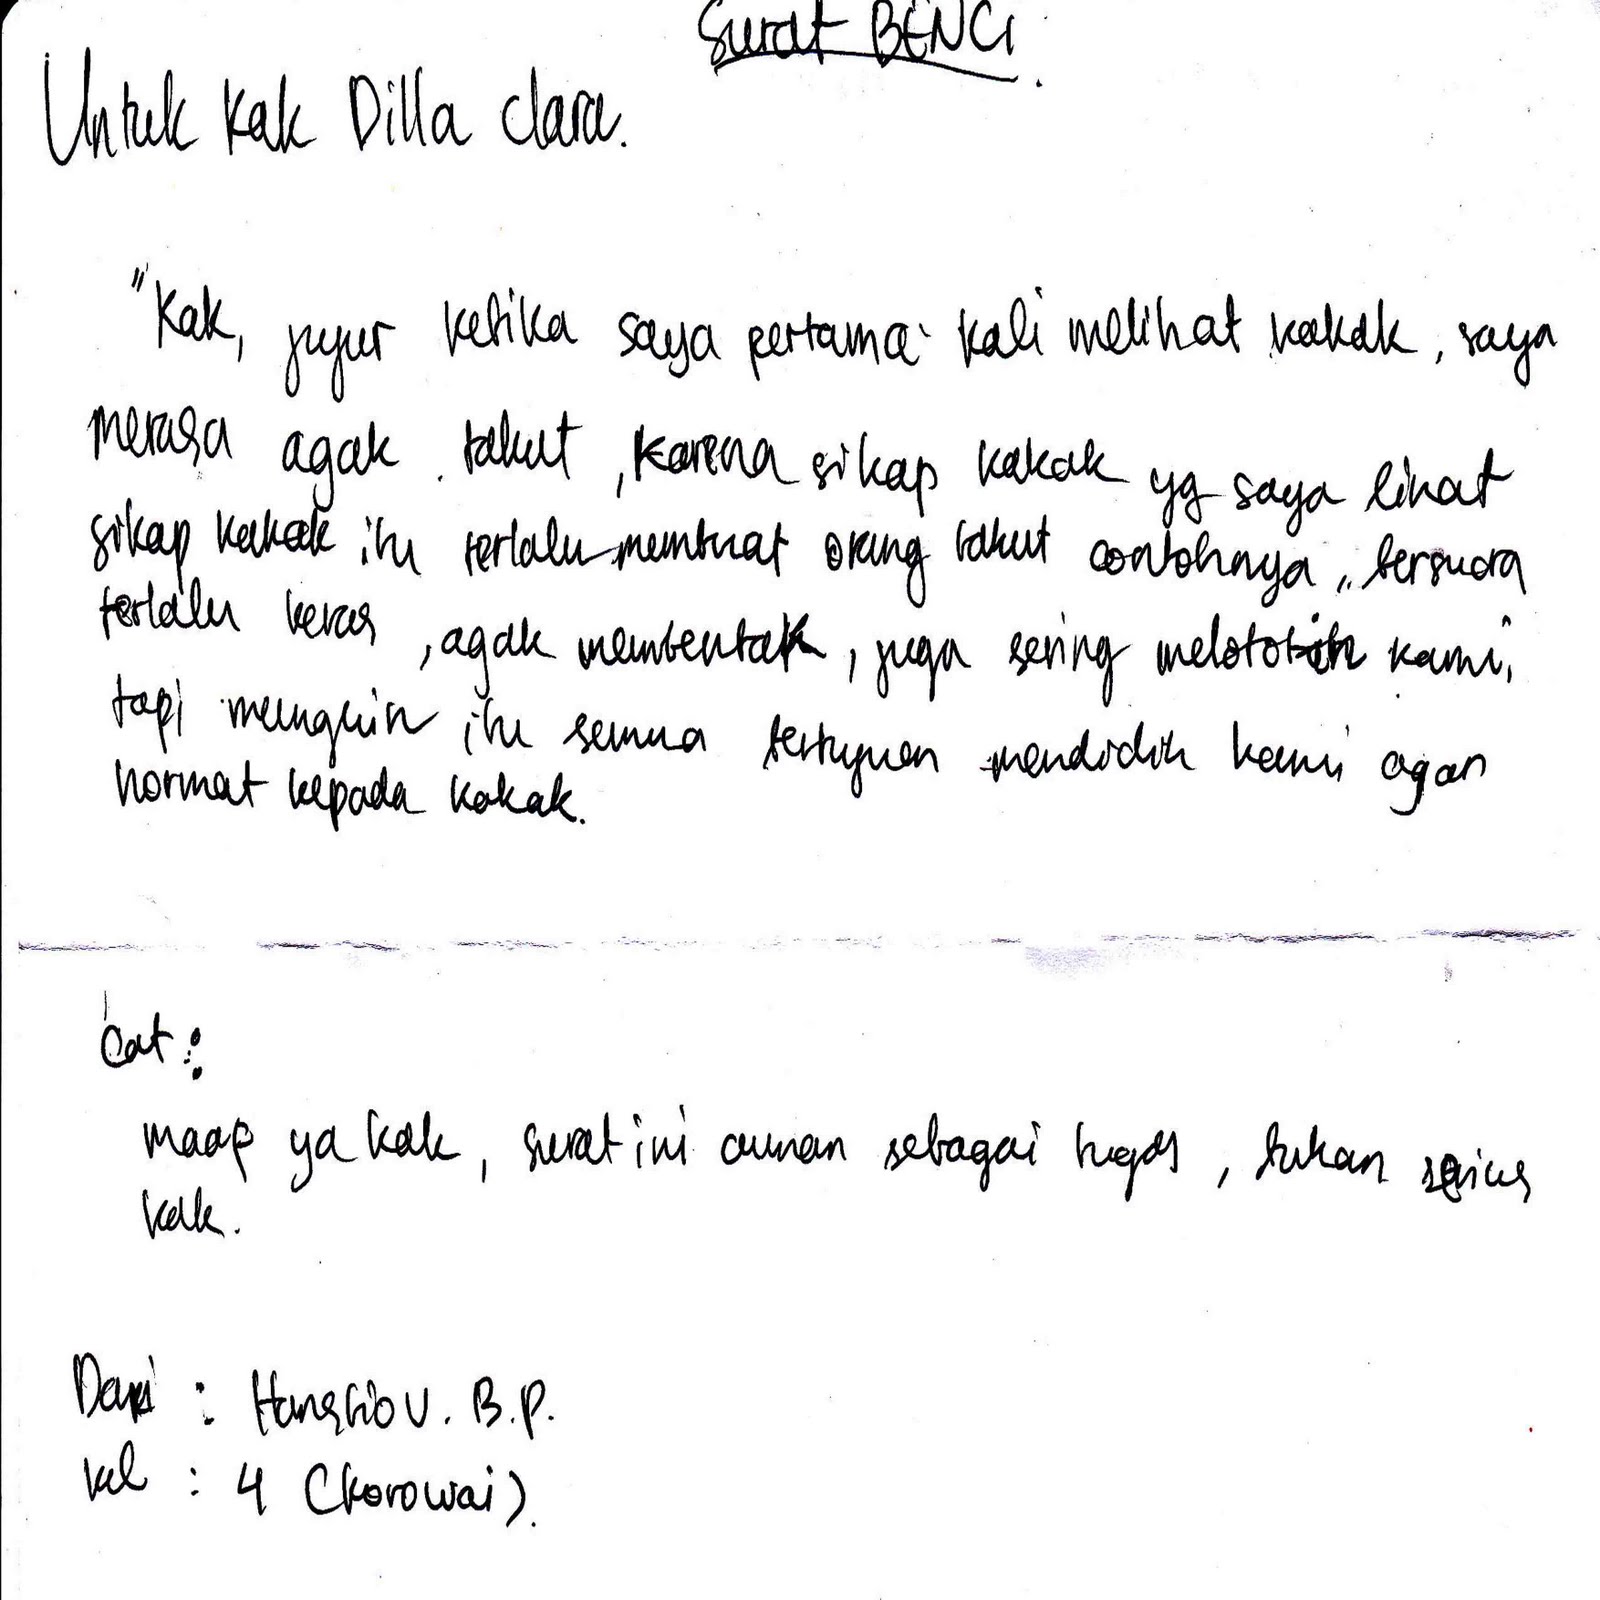 Surat BENCI.
Untuk Kak Dilla Clara.
"Kak, jujur ketika saya pertama kali melihat kakak, saya
merasa agak takut, karena sikap kakak yg saya lihat
sikap kakak itu terlalu membuat orang takut contohnya, bersuara
terlalu keras, agak membentak, juga sering melototin kami,
tapi mungkin itu semua bertujuan mendidik kami agar
hormat kepada kakak.
Cat :
maap ya kak, surat ini cuman sebagai tugas, bukan serius
kak.
Dari : V. B.P.
kel : 4 (korowai).